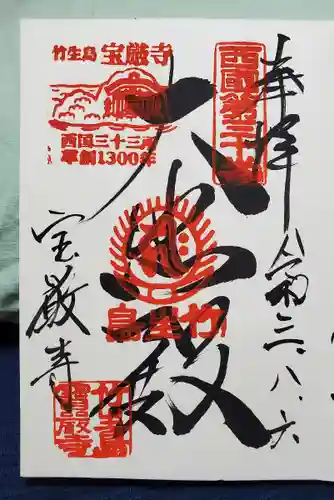 奉拝
令和三.八.六
西國第三十番
大悲殿
竹生島 宝厳寺
西国三十三所
草創1300年
竹生島
宝厳寺
竹生島
寶厳寺